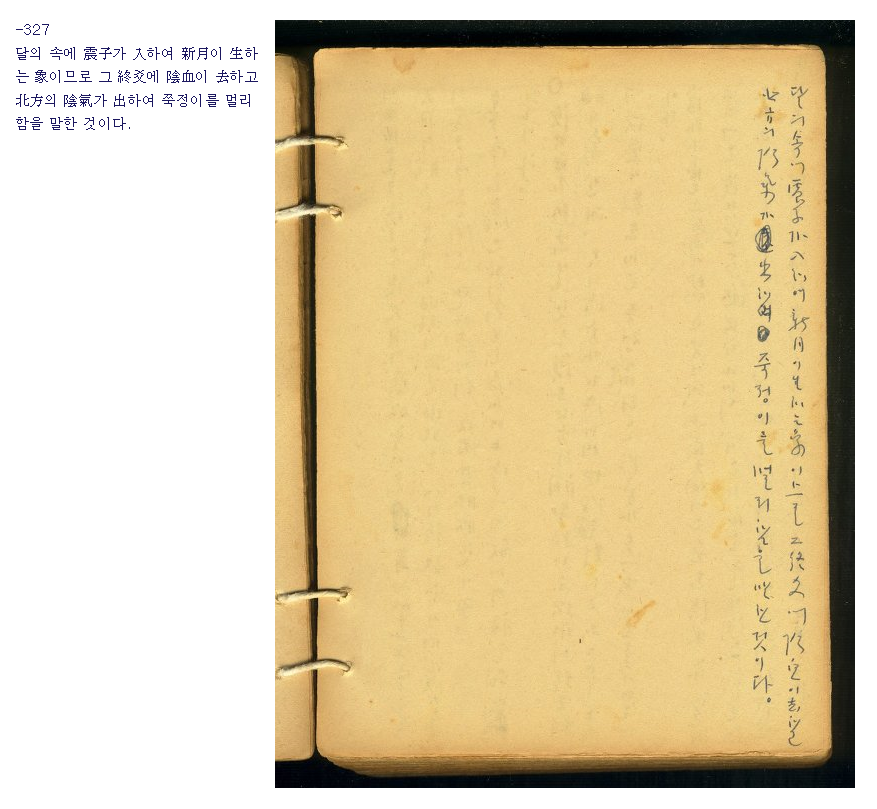 -327
달의 속에 震子가 入하여 新月이 生하
는 象이므로 그 終爻에 陰血이 去하고
北方의 陰氣가 出하여 쭉정이를 멀리
함을 말한 것이다.
달의 속에 震子가 入하여 新月이 生하는 象이므로 그 終爻에 陰血이 去
北方의 陰氣가 出하여 쭉정이를 멀리함을 말한 것이다.